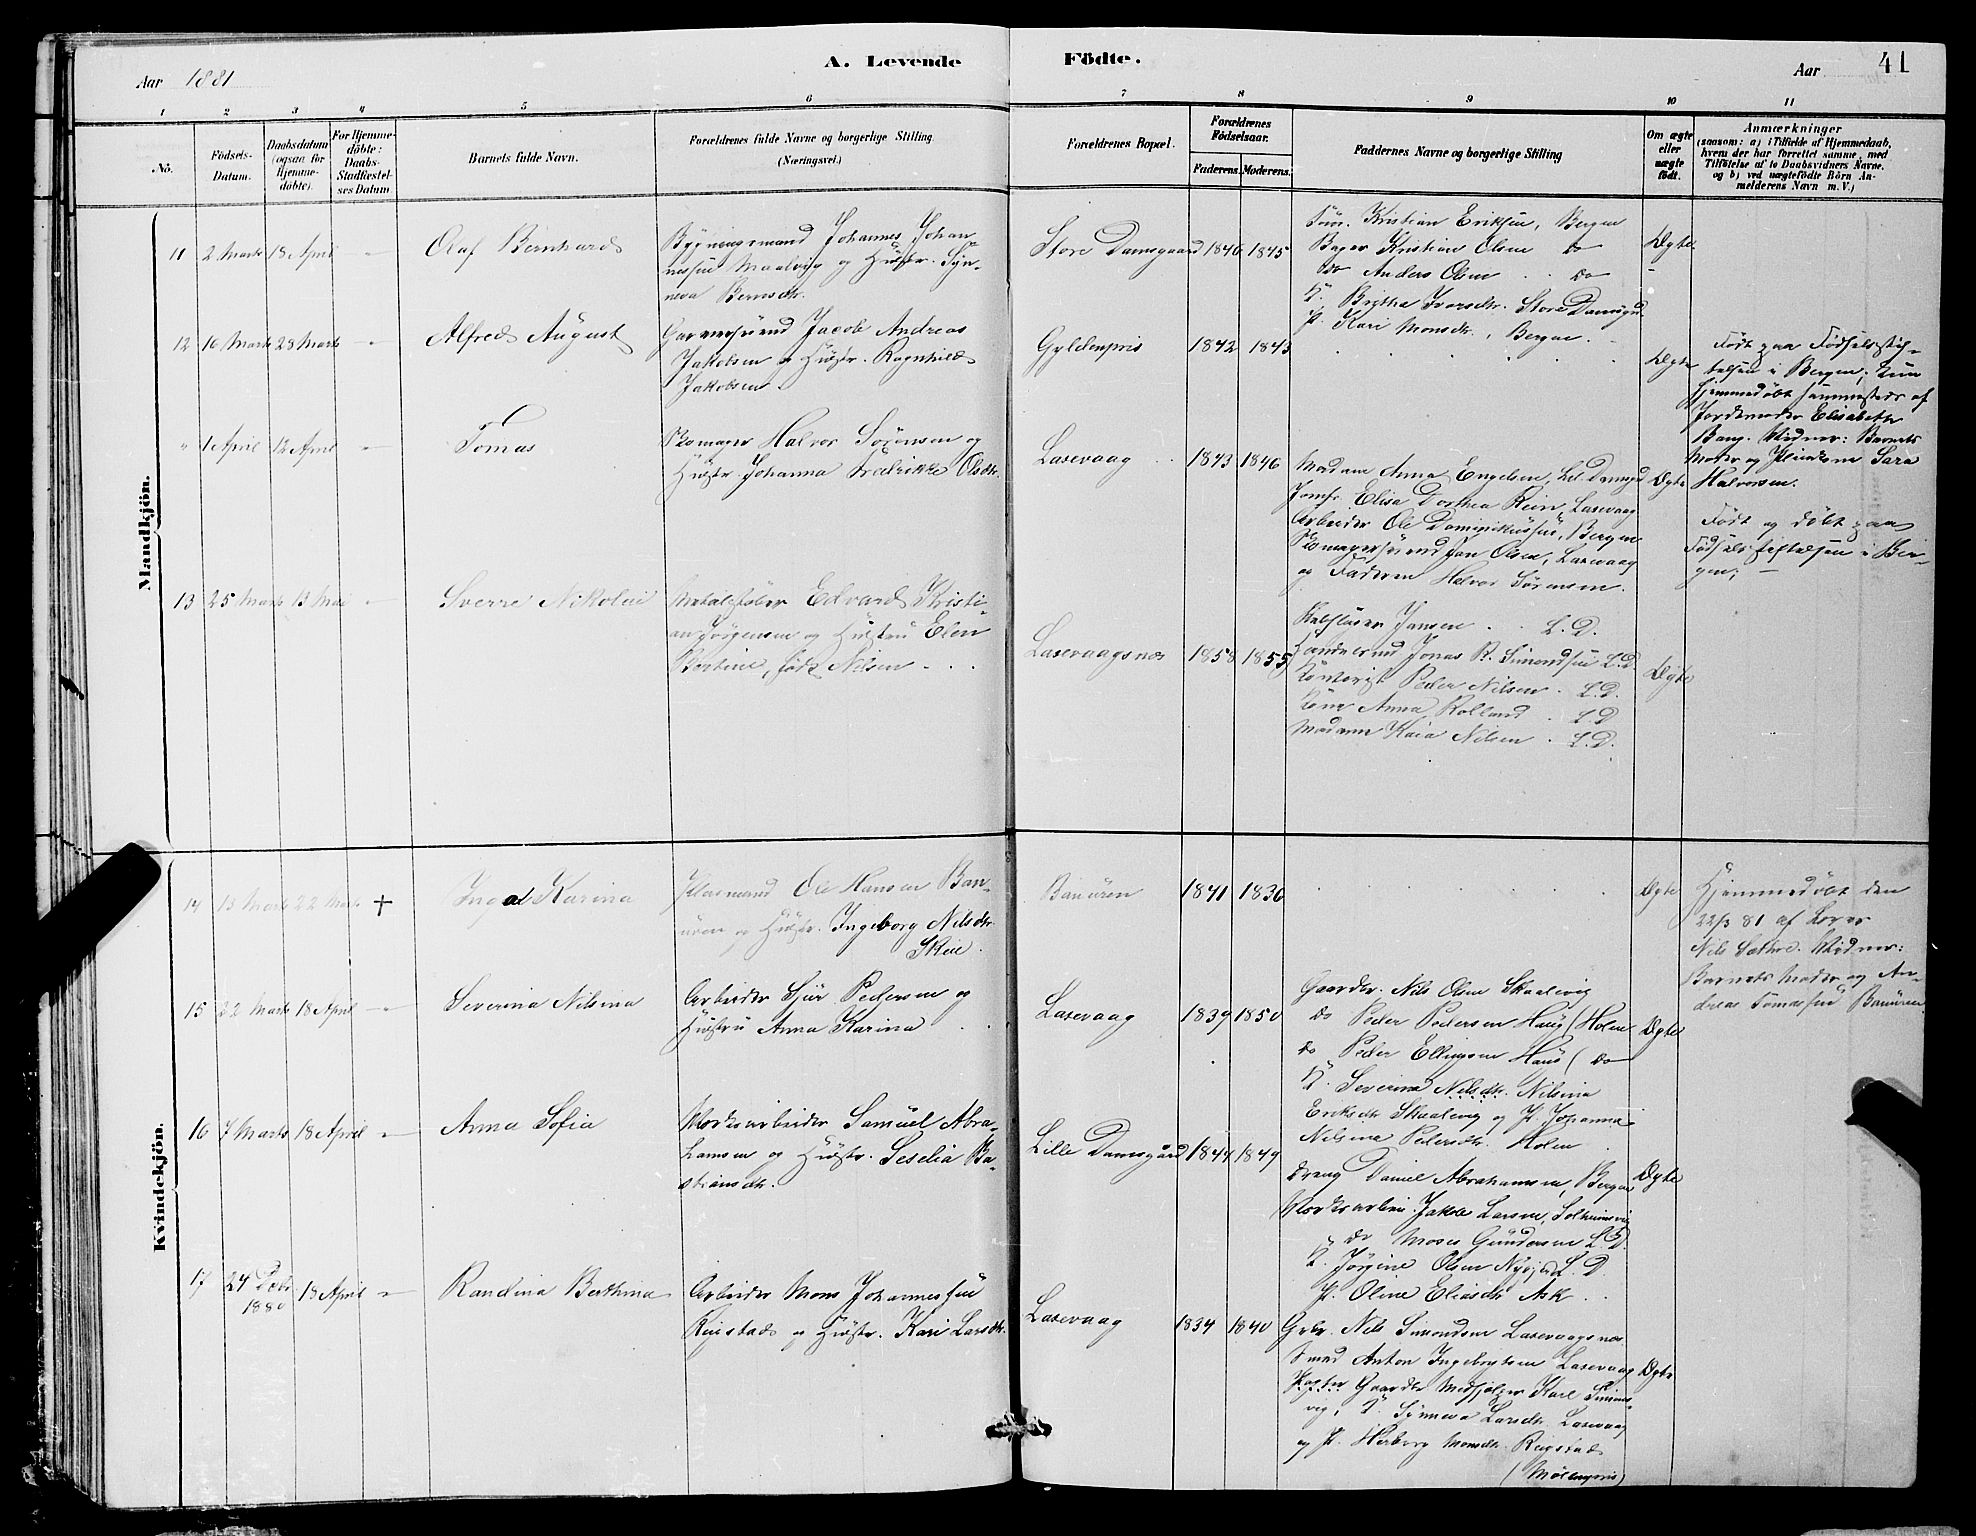 Aar 1881
A. Levende Födte.
Aar 41
1 2 3 4 5 6 7 8 9 10 11
No.
Födsels-Datum.
Daabsdatum (ogsaa for Hjemme-döbte).
For Hjemme-döbte: Daabs-Stadfæstel-ses Datum
Barnets fulde Navn.
Forældrenes fulde Navne og borgerlige Stilling
(Næringsvei.)
Forældrenes Bopæl.
Forældrenes Födselsaar.
Faderens. Moderens.
Faddernes Navne og borgerlige Stilling
Om ægte eller uægte födt.
Anmærkninger
(saasom: a) i Tilfælde af Hjemmedaab,
hvem der har forrettet samme, med
Tilföielse af to Daabsvidners Navne.
og b) ved uægtefödte Börn An-
melderens Navn m. V.)
Mandkjön.
11 2 Marts 18 April " Olaf Bernhard
Bygningsmand Johannes Johan
nessen Maalvig og Hustr. Syn-
neva Berntsdtr.
Store Damsgaard 1846 1845
Kristian Eriksen, Bergen
Bager Kristian Olsen do
do Anders Olsen . . do
K. Brytha Ivarsdtr. Store Damsgrd
P. Kari Monsdtr., Bergen
Ægte
12 16 Marts 28 Marts " Alfred August
Garversvend Jacob Andreas
Jakobsen og Hustr. Ragnhild
Jakobsen
Gyldenpris 1842 1843
Ægte
Født paa Fødselsstif-
telsen i Bergen;
hjemmedøbt sammesteds af
Jordemoder Elisabeth
Bang. Vidner: Barnets
Moder og Sara
Halvorsen.
" 1 April 12 April " Tomas
Skomager Halvor Sörensen og
Hustr. Johanna Fredrikke Olsdtr.
Laxevaag 1843 1846
Madam Anna Engelsen, Lil. Damsgrd
Jomfr. Elisa Dorthea Rein, Laxevaag
Arbeider Ole Dominikussen, Bergen
Skomagersvend Jan Olsen, Laxevaag
og Faderen Halvor Sørensen.
Ægte
Født og døbt paa
Fødselsstiftelsen i Ber-
gen; —
13 25 Marts 13 Mai " Sverre Nikolai
Metalstøber Edvard Kristi-
an Jørgensen og Hustru Elen
Bertine, født Nilsen . . .
Laxevaagsnes 1858 1855
Jansen . . L.D.
Jonas R. Simondsen L.D
Kontorist Peder Nilsen . L.D.
Kone Anna Rolland . L.D
Madam Kaia Nilsen . L.D.
Ægte
Kvindekjön.
14 13 Marts 22 Marts + Inga Karina
Pladsmand Ole Hansen Ban-
uren og Hustr. Ingeborg Nilsdtr.
Skeie.
Banuren 1841 1836
Ægte
Hjemmedøbt den
22/3 81 af Lærer
Nils Sæthre. Vidner:
Barnets Moder og An-
dreas Tomassen Banuren
15 22 Marts 18 April " Severina Nilsina
Arbeider Sjur Pedersen og
Hustru Anna Karina . .
Laxevaag 1839 1850
Gaardbr. Nils Olsen Skaalevig
do Peder Pedersen Haug (Holen
do Peder Ellingsen Haus (do
K. Severina Nilsdtr. Nilsina
Eriksdtr Skaalevig og P. Johanna
Nilsina Pedersdtr. Holen
Ægte
16 7 Marts 18 April " Anna Sofia
Værksarbeider Samuel Abra-
hamsen og Hustr. Seselia Ba-
stiansdtr.
Lille Damsgård 1844 1849
Dreng Daniel Abrahamsen, Bergen
Værksarbeider Jakob Larsen, Solheimsvig
" do Moses Gundersen L.D.
K. Jörgine Olsen Nygjord L.D.
P. Oline Eliasdtr Ask . .
Ægte
17 24 Decbr 1880 18 April " Randina Berthina
Arbeider Mons Johannessen
Ruistad og Hustr. Kari Larsdtr.
Laxevaag 1834 1840
Gbr. Nils Simondsen Laxevaagsnes
Smed Anton Ingebrigtsen Laxevaag
Gaardbr Karl Simons-
vig, K. Synneva Larsdtr. Laxevaag
og P. Herborg Monsdtr. Rugstad
(Møllenpris)
Ægte